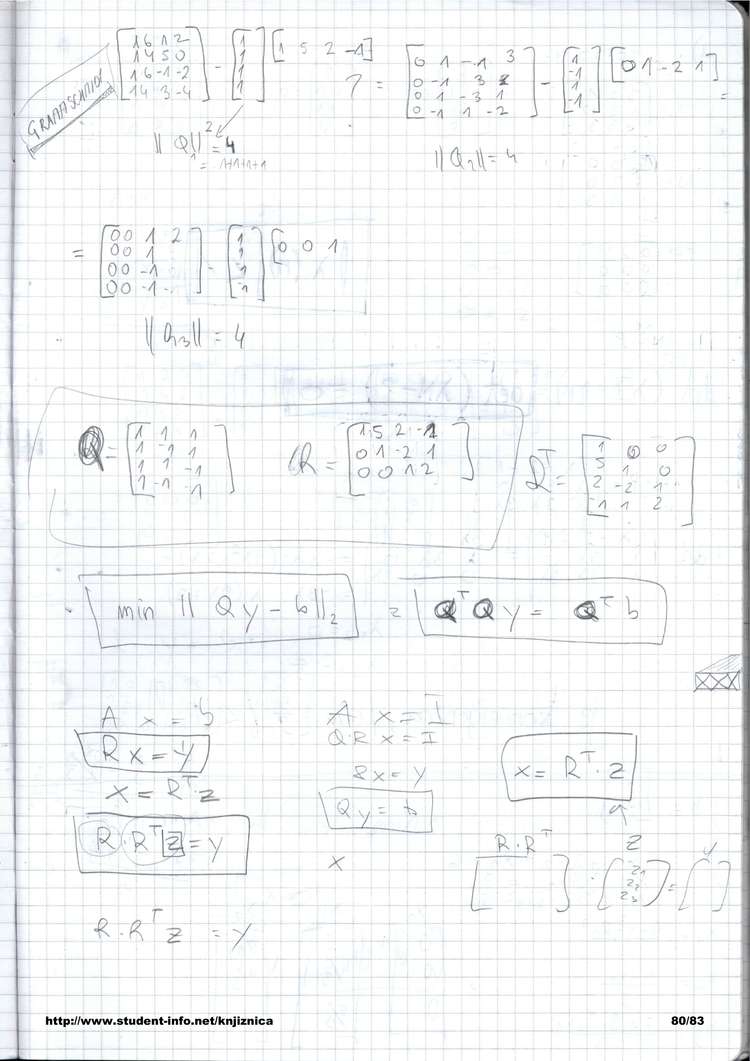 GRAMSCHMIDT
[1 6 1 2; 1 4 5 0; 1 6 -1 -2; 1 4 3 -4] - [1; 1; 1; 1] [1 5 2 -1]
? = [0 1 -1 3; 0 -1 3 1; 0 1 -3 1; 0 -1 1 -2] - [1; -1; 1; -1] [0 1 -2 1] =
||Q₁||² = 4
= 1+1+1+1
||Q₂|| = 4
= [0 0 1 2; 0 0 1; 0 0 -1; 0 0 -1] - [1; 1; -1; -1] [0 0 1
||Q₃|| = 4
Q = [1 1 1; 1 -1 1; 1 1 -1; 1 -1 -1]
R = [1 5 2 -1; 0 1 -2 1; 0 0 1 2]
Rᵀ = [1 0 0; 5 1 0; 2 -2 1; -1 1 2]
min || Qy - b ||₂ = QᵀQy = Qᵀb
A x = b
R x = y
x = Rᵀ·z
R·Rᵀz = y
R·Rᵀz = y
A x = I
QR x = I
Rx = y
Qy = b
x
x = Rᵀ·z
R·Rᵀ z y
[ ] · [z₁; z₂; z₃] = [ ]
http://www.student-info.net/knjiznica
80/83